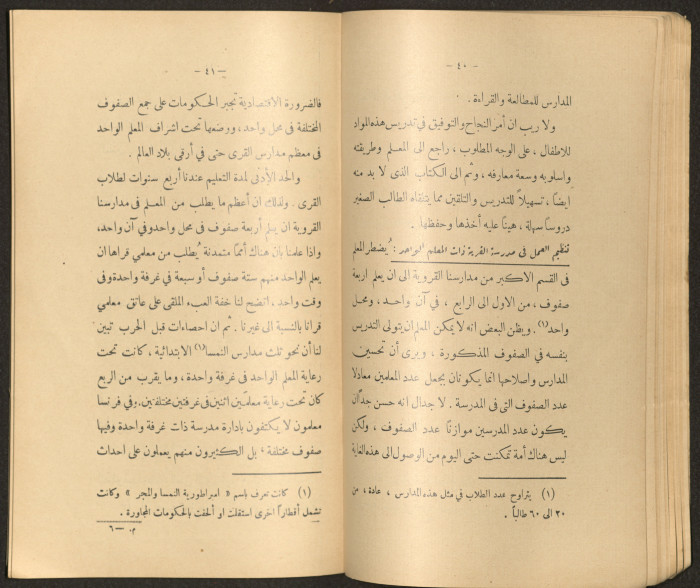 — ٤٠ —
المدارس للمطالعة والقراءة .
ولا ريب ان أمر النجاح والتوفيق في تدريس هذه المواد
للاطفال ، على الوجه المطلوب ، راجع الى المعلم وطريقته
واسلوبه وسعة معارفه ، وثم الى الكتاب الذى لا بد منه
ايضاً ، تسهيلاً للتدريس والتلقين مما يتلقاه الطالب الصغير
دروساً سهلة ، هيناً عليه أخذها وحفظها .
تنظيم العمل فى مدرسة القرية ذات المعلم الواحد : يُضطر المعلم
فى القسم الاكبر من مدارسنا القروية الى ان يعلم اربعة
صفوف ، من الاول الى الرابع ، فى آن واحد ، ومحل
واحد(١) . ويظن البعض انه لا يمكن المعلم ان يتولى التدريس
بنفسه في الصفوف المذكورة ، ويرى أن تحسين
المدارس واصلاحها انما يكونان بجعل عدد المعلمين معادلا
عدد الصفوف التى فى المدرسة . لا جدال انه حسن جداً ان
يكون عدد المدرسين موازناً عدد الصفوف ، ولكن
ليس هناك أمة تمكنت حتى اليوم من الوصول الى هذه الغاية
(١) يتراوح عدد الطلاب في مثل هذه المدارس ، عادة ، من
٢٠ الى ٦٠ طالباً .
— ٤١ —
فالضرورة الاقتصادية تجبر الحكومات على جمع الصفوف
المختلفة فى محل واحد ، ووضعها تحت اشراف المعلم الواحد
فى معظم مدارس القرى حتى في أرقى بلاد العالم .
والحد الأدنى لمدة التعليم عندنا أربع سنوات لطلاب
القرى . ولذلك ان أعظم ما يطلب من المعلم فى مدارسنا
القروية ان يعلم أربعة صفوف فى محل واحد وفي آن واحد ،
واذا علمنا بان هناك أمماً متمدنة يُطلب من معلمي قراها ان
يعلم الواحد منهم ستة صفوف أو سبعة في غرفة واحدة وفى
وقت واحد ، اتضح لنا خفة العبء الملقى على عاتق معلمي
قرانا بالنسبة الى غيرنا . ثم ان احصاءات قبل الحرب تبين
لنا أن نحو ثلث مدارس النمسا(١) الابتدائية ، كانت تحت
رعاية المعلم الواحد فى غرفة واحدة ، وما يقرب من الربع
كان تحت رعاية معلمين اثنين فى غرفتين مختلفتين . وفي فرنسا
معلمون لا يكتفون بادارة مدرسة ذات غرفة واحدة وفيها
صفوف مختلفة ، بل الكثيرون منهم يعملون على احداث
(١) كانت تعرف باسم « امبراطورية النمسا والمجر » وكانت
تشمل أقطاراً اخرى استقلت او ألحقت بالحكومات المجاورة .
م — ٦